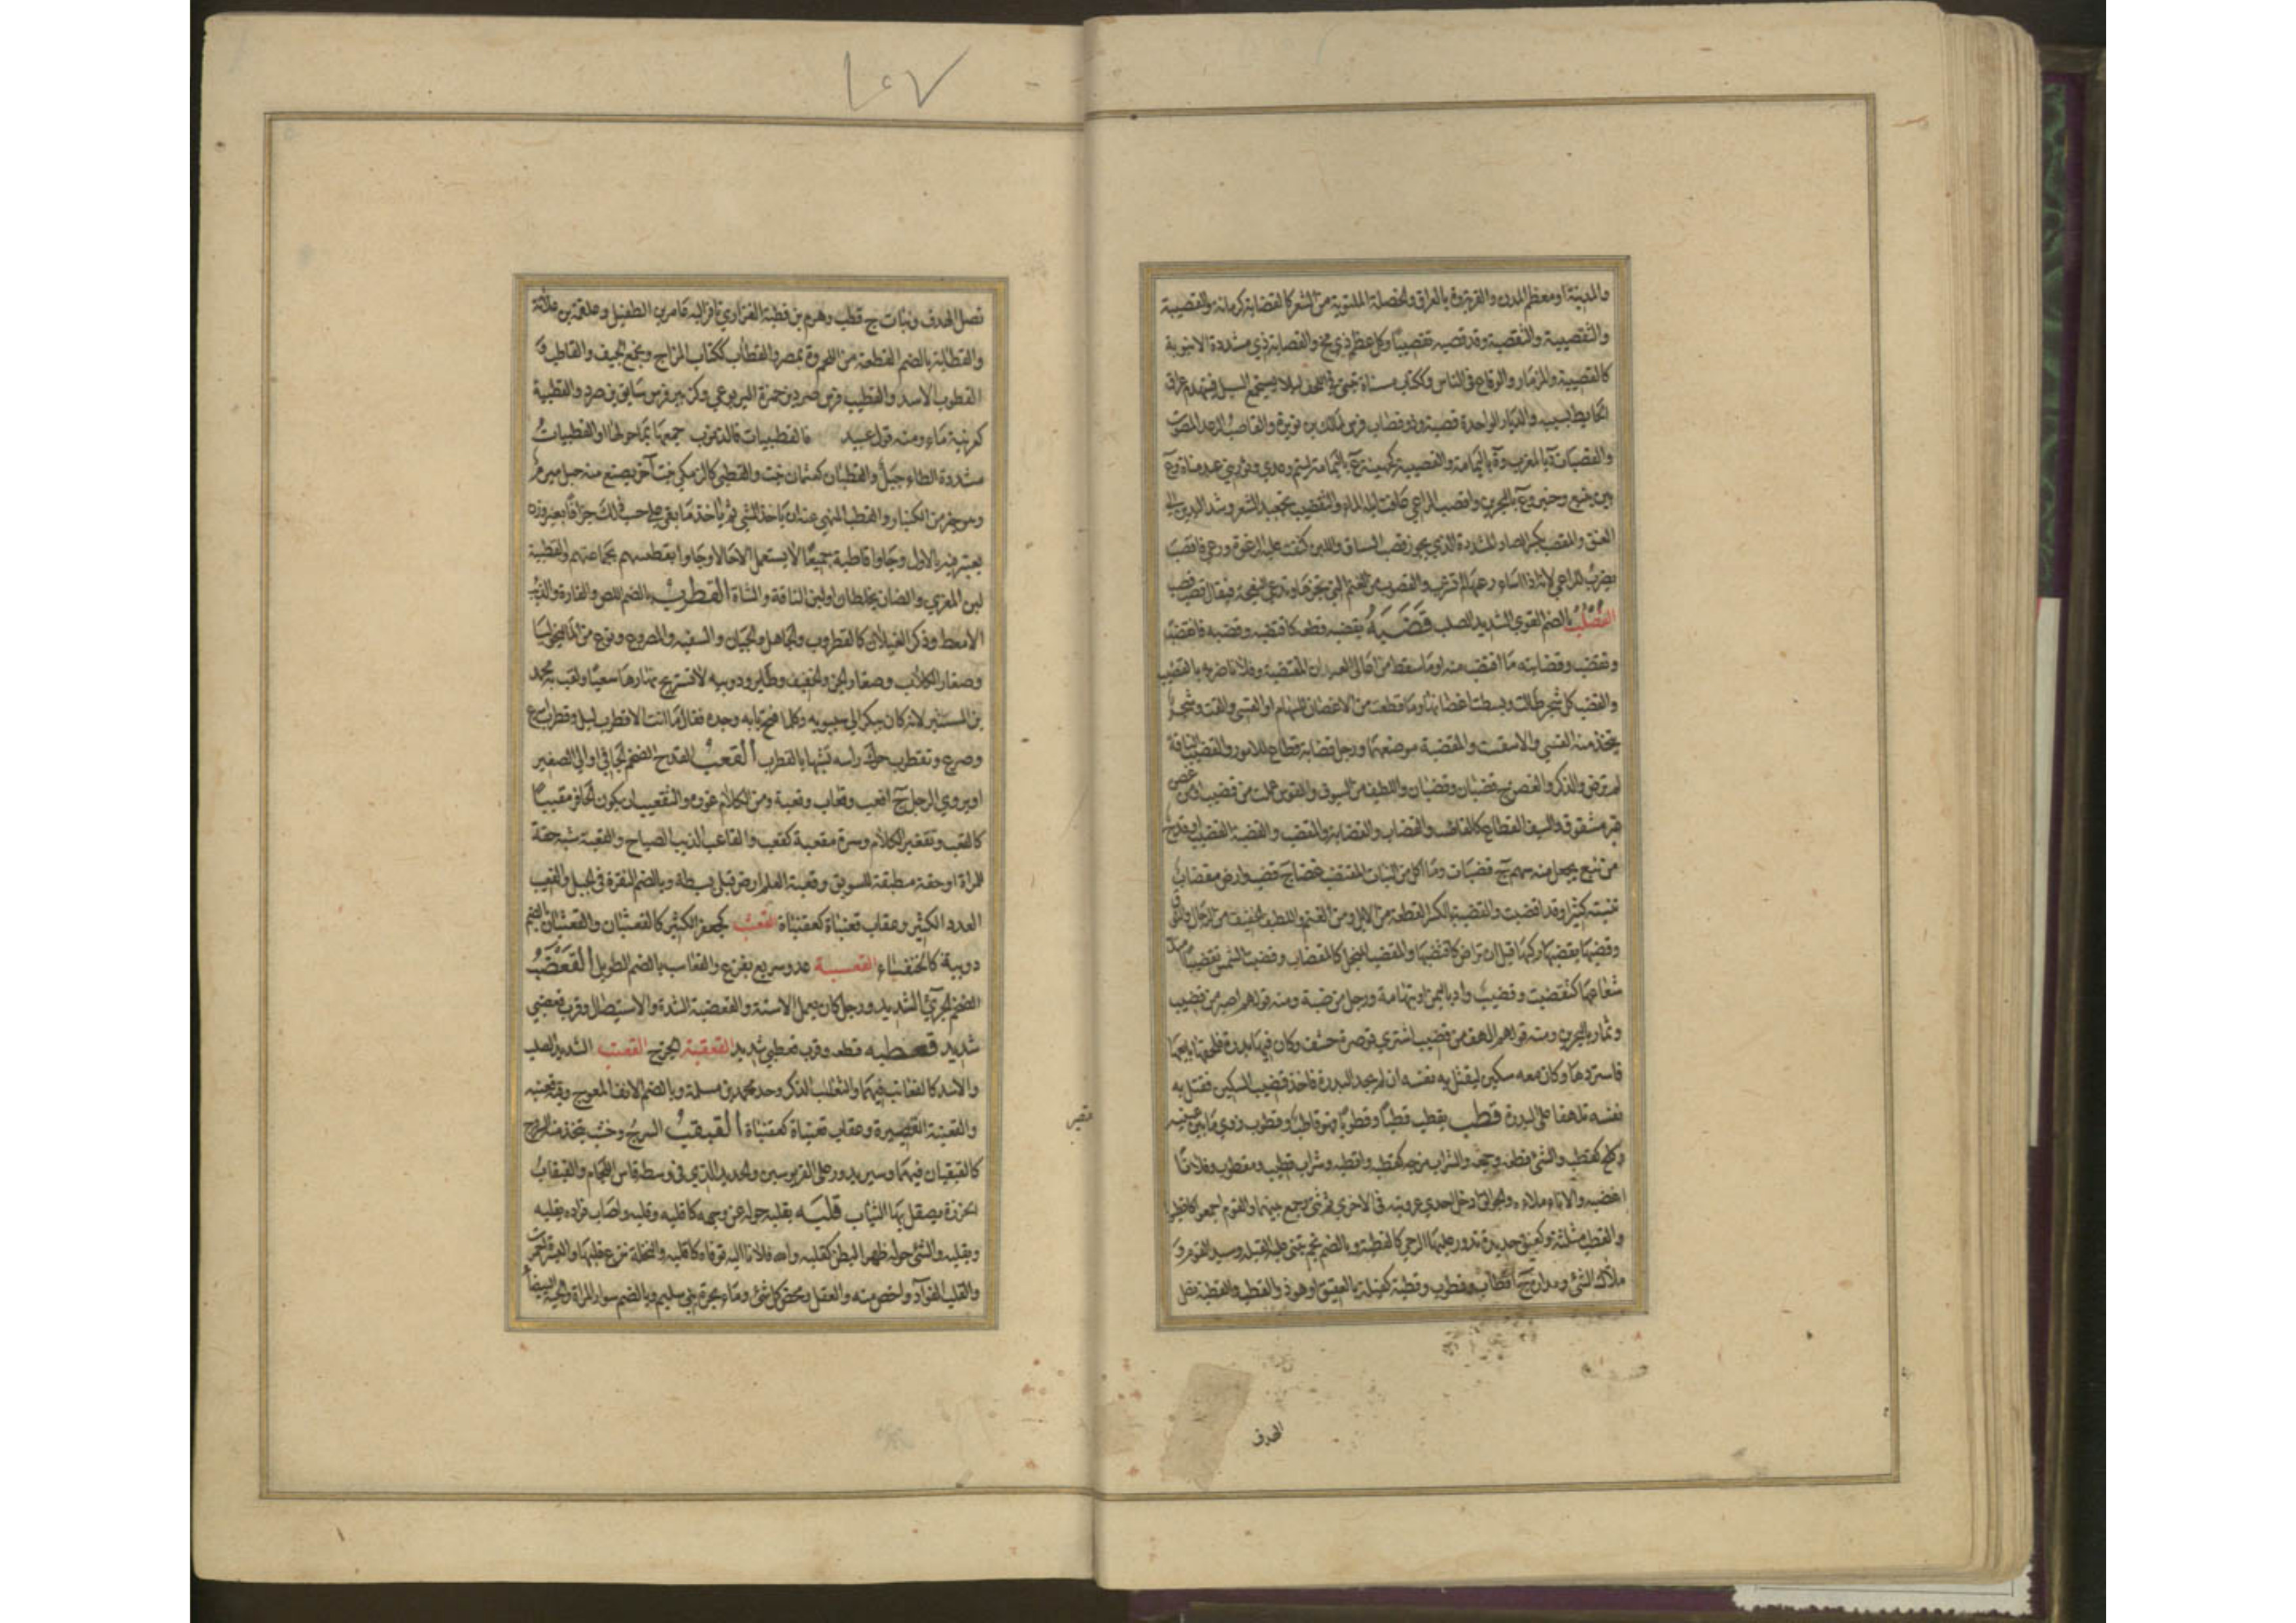 والمدينة او معظم المدن والقرية وة بالعراق والخصلة الملتوية من الشعر كالقصابة كرمانة والقصيبة
والتقصيبة والتقصبة وقد قصبه تقصيبا وكل عظم ذي مخ والقصابة ذي مشددة الانبوبة
كالقصيبة والمزمار والوقاع في الناس وككتاب مسناة تبنى في اللحف لئلا يستجمع السيل فينهدم عراق
الحايط بسببه والديار الواحدة قصبة وذو قصاب فرس لمالك بن نويرة والقاصب الرعد المصوت
والقصبات ة بالمغرب وة باليمامة والقصيبة كجهينة ع باليمامة لتيم وعدي وثور بني عبد مناة وع
بين ينبع وخيبر وع بالبحرين واقصب الراعي عافت ابله الماء والتقصيب تجعيد الشعر وشد اليدين الى
العنق والمقصب بكسر الصاد المشددة الذي يحوز قصب السباق واللبن كثفت عليه الرغوة ورعي فاقصب
يضرب للراعي لانه اذا اساء رعيها لم تشرب والقصوب من الغنم التي تجزها وتدعى النعجة فيقال قصب قصب
القصلب بالضم القوي الشديد الصلب قضبه يقضبه قطعه كاقتضبه وقضبه فانقضب
وتقضب وقضابته ما اقتضب منه او ما سقط من اعالي العيدان المقتضبة وفلانا ضربه بالقضيب
والقضب كل شجر طالت وبسطت اغصانها وما قطعت من الاغصان للسهام او القسي والقت وشجر
يتخذ منه القسي والاسفست والمقضبة موضعهما ورجل قضابة قطاع للامور والقضيب الناقة
لم ترض والذكر والغصن ج قضبان وقضبان واللطيف من السيوف والقوس عملت من قضيب او من غصن
غير مشقوق والسيف القطاع كالقاضب والقضاب والقضابة والمقضب والقضبة القضيب او قدح
من نبع يجعل منه سهم ج قضبات وما اكل من النبات المقتضب غضا ج قضب وارض مقضاب
تنبته كثيرا وقد اقضبت والقضبة بالكسر القطعة من الابل ومن الغنم واللطيف الخفيف من الرجال والنوق
وقضبها يقضبها ركبها قبل ان تراض كاقتضبها والمقضب المنجل كالمقضاب وقضبت الشمس تقضيبا امتد
شعاعها كتقضبت وقضيب واد باليمن او بتهامة ورجل من ضبة ومنه قولهم اصبر من قضيب
وتمار بالبحرين ومنه قولهم الهف من قضيب اشترى قوصرة حشف وكان فيها بدرة فلحقه بايعها
فاستردها وكان معه سكين ليقتل به نفسه ان لم يجد البدرة فاخذ قضيب السكين فقتل به
نفسه تلهفا على البدرة قطب يقطب قطبا وقطوبا فهو قاطب وقطوب زوى ما بين عينيه
وكلح كقطب والشئ قطعه وجمعه والشراب مزجه كقطبه واقطبه وشراب قطيب ومقطوب وفلانا
اغضبه والاناء ملاءه والجوالق ادخل احدى عروتيه في الاخرى ثم ثنى وجمع بينهما والقوم اجتمعوا كاقطبوا
والقطب مثلثة وكعنق حديدة تدور عليها الرحى كالقطبة وبالضم نجم تبنى عليه القبلة وسيد القوم و
ملاك الشئ ومداره ج اقطاب وقطوب وقطبة كفيلة بالعقيق او هو ذو القطب والقطبة نصل
الهدف
نصل الهدف ونبات ج قطب وهرم بن قطبة الفزاري نافر اليه عامر بن الطفيل وعلقمة بن علاثة
والقطابة بالضم القطعة من اللحم وة بمصر والقطاب ككتاب المزاج ومجمع الجيب والقاطب و
القطوب الاسد والقطيب فرس صرد بن حمزة اليربوعي وكزبير فرس سابق بن صرد والقطبية
كعرنية ماء ومنه قول عبيد فالقطبيات فالذنوب جمعها بما حولها او القطبيات
مشددة الطاء جبل والقطبان كعثمان نبت والقطبى كالزمكى نبت آخر يصنع منه حبل مبرم
وهو خير من الكنبار والقطب المنهي عنه ان ياخذ الشي ثم ياخذ ما بقي على حسب ذلك جزافا بغير وزن
يعتبر فيه بالاول وجاوا قاطبة جميعا لا يستعمل الا حالا وجاوا بقطيبهم بجماعتهم والقطيبة
لبن المعزى والضان يخلطان او لبن الناقة والشاة القطرب بالضم اللص والفارة والذئب
الامعط وذكر الغيلان كالقطروب والجاهل والجبان والسفيه والمصروع ونوع من الماليخوليا
وصغار الكلاب وصغار الجن والخفيف وطاير ودويبة لا تستريح نهارها سعيا ولقب به محمد
بن المستنير لانه كان يبكر الى سيبويه وكلما فتح بابه وجده فقال ما انت الا قطرب ليل وقطرب اسرع
وصرع وتقطرب حرك راسه تشبها بالقطرب القعب القدح الضخم الجافي او الى الصغر
او يروي الرجل ج اقعب وقعاب وقعبة ومن الكلام غوره والتقعيب ان يكون الحافر مقببا
كالقعب وتقعير الكلام وسرة مقعبة كقعب والقاعب الذيب الصياح والقعبة شبه حقة
للمراة او حقة مطبقة للسويق وقعبة العلم ارض قبلي بسيطة وبالضم النقرة في الجبل والقعيب
العدد الكثير وعقاب قعنباة كعقنباة القعثب كجعفر الكثير كالقعثبان والقعثبان بالضم
دويبة كالخنفساء القعسبة عدو سريع بفزع والقعاسب بالضم الطويل القعضب
الضخم الجرئ الشديد ورجل كان يعمل الاسنة والقعضبة الشدة والاستيصال وقرب قعضبي
شديد قعطبه قطعه وقرب قعطبي شديد القعقبة الحرص القعنب الشديد الصلب
والاسد كالقعانب فيهما والثعلب الذكر وجد محمد بن مسلمة وبالضم الانف المعوج وفيه قعنبة
والقعنبة القصيرة وعقاب قعنباة كعقنباة القيقب السرج وخشب يتخذ منه السروج
كالقيقبان فيهما وسير يدور على القربوسين والحديد الذي في وسطه فاس اللجام والقيقاب
الخرزة يصقل بها الثياب قلبه يقلبه حوله عن وجهه كاقلبه وقلبه واصاب فؤاده يقلبه
ويقلبه والشئ حوله ظهرا لبطن كقلبه والله فلانا اليه توفاه كاقلبه والنخلة نزع قلبها والبسرة احمرت
والقلب الفؤاد واخص منه والعقل ومحض كل شئ وماء بحرة بني سليم وبالضم سوار المراة والحية البيضاء